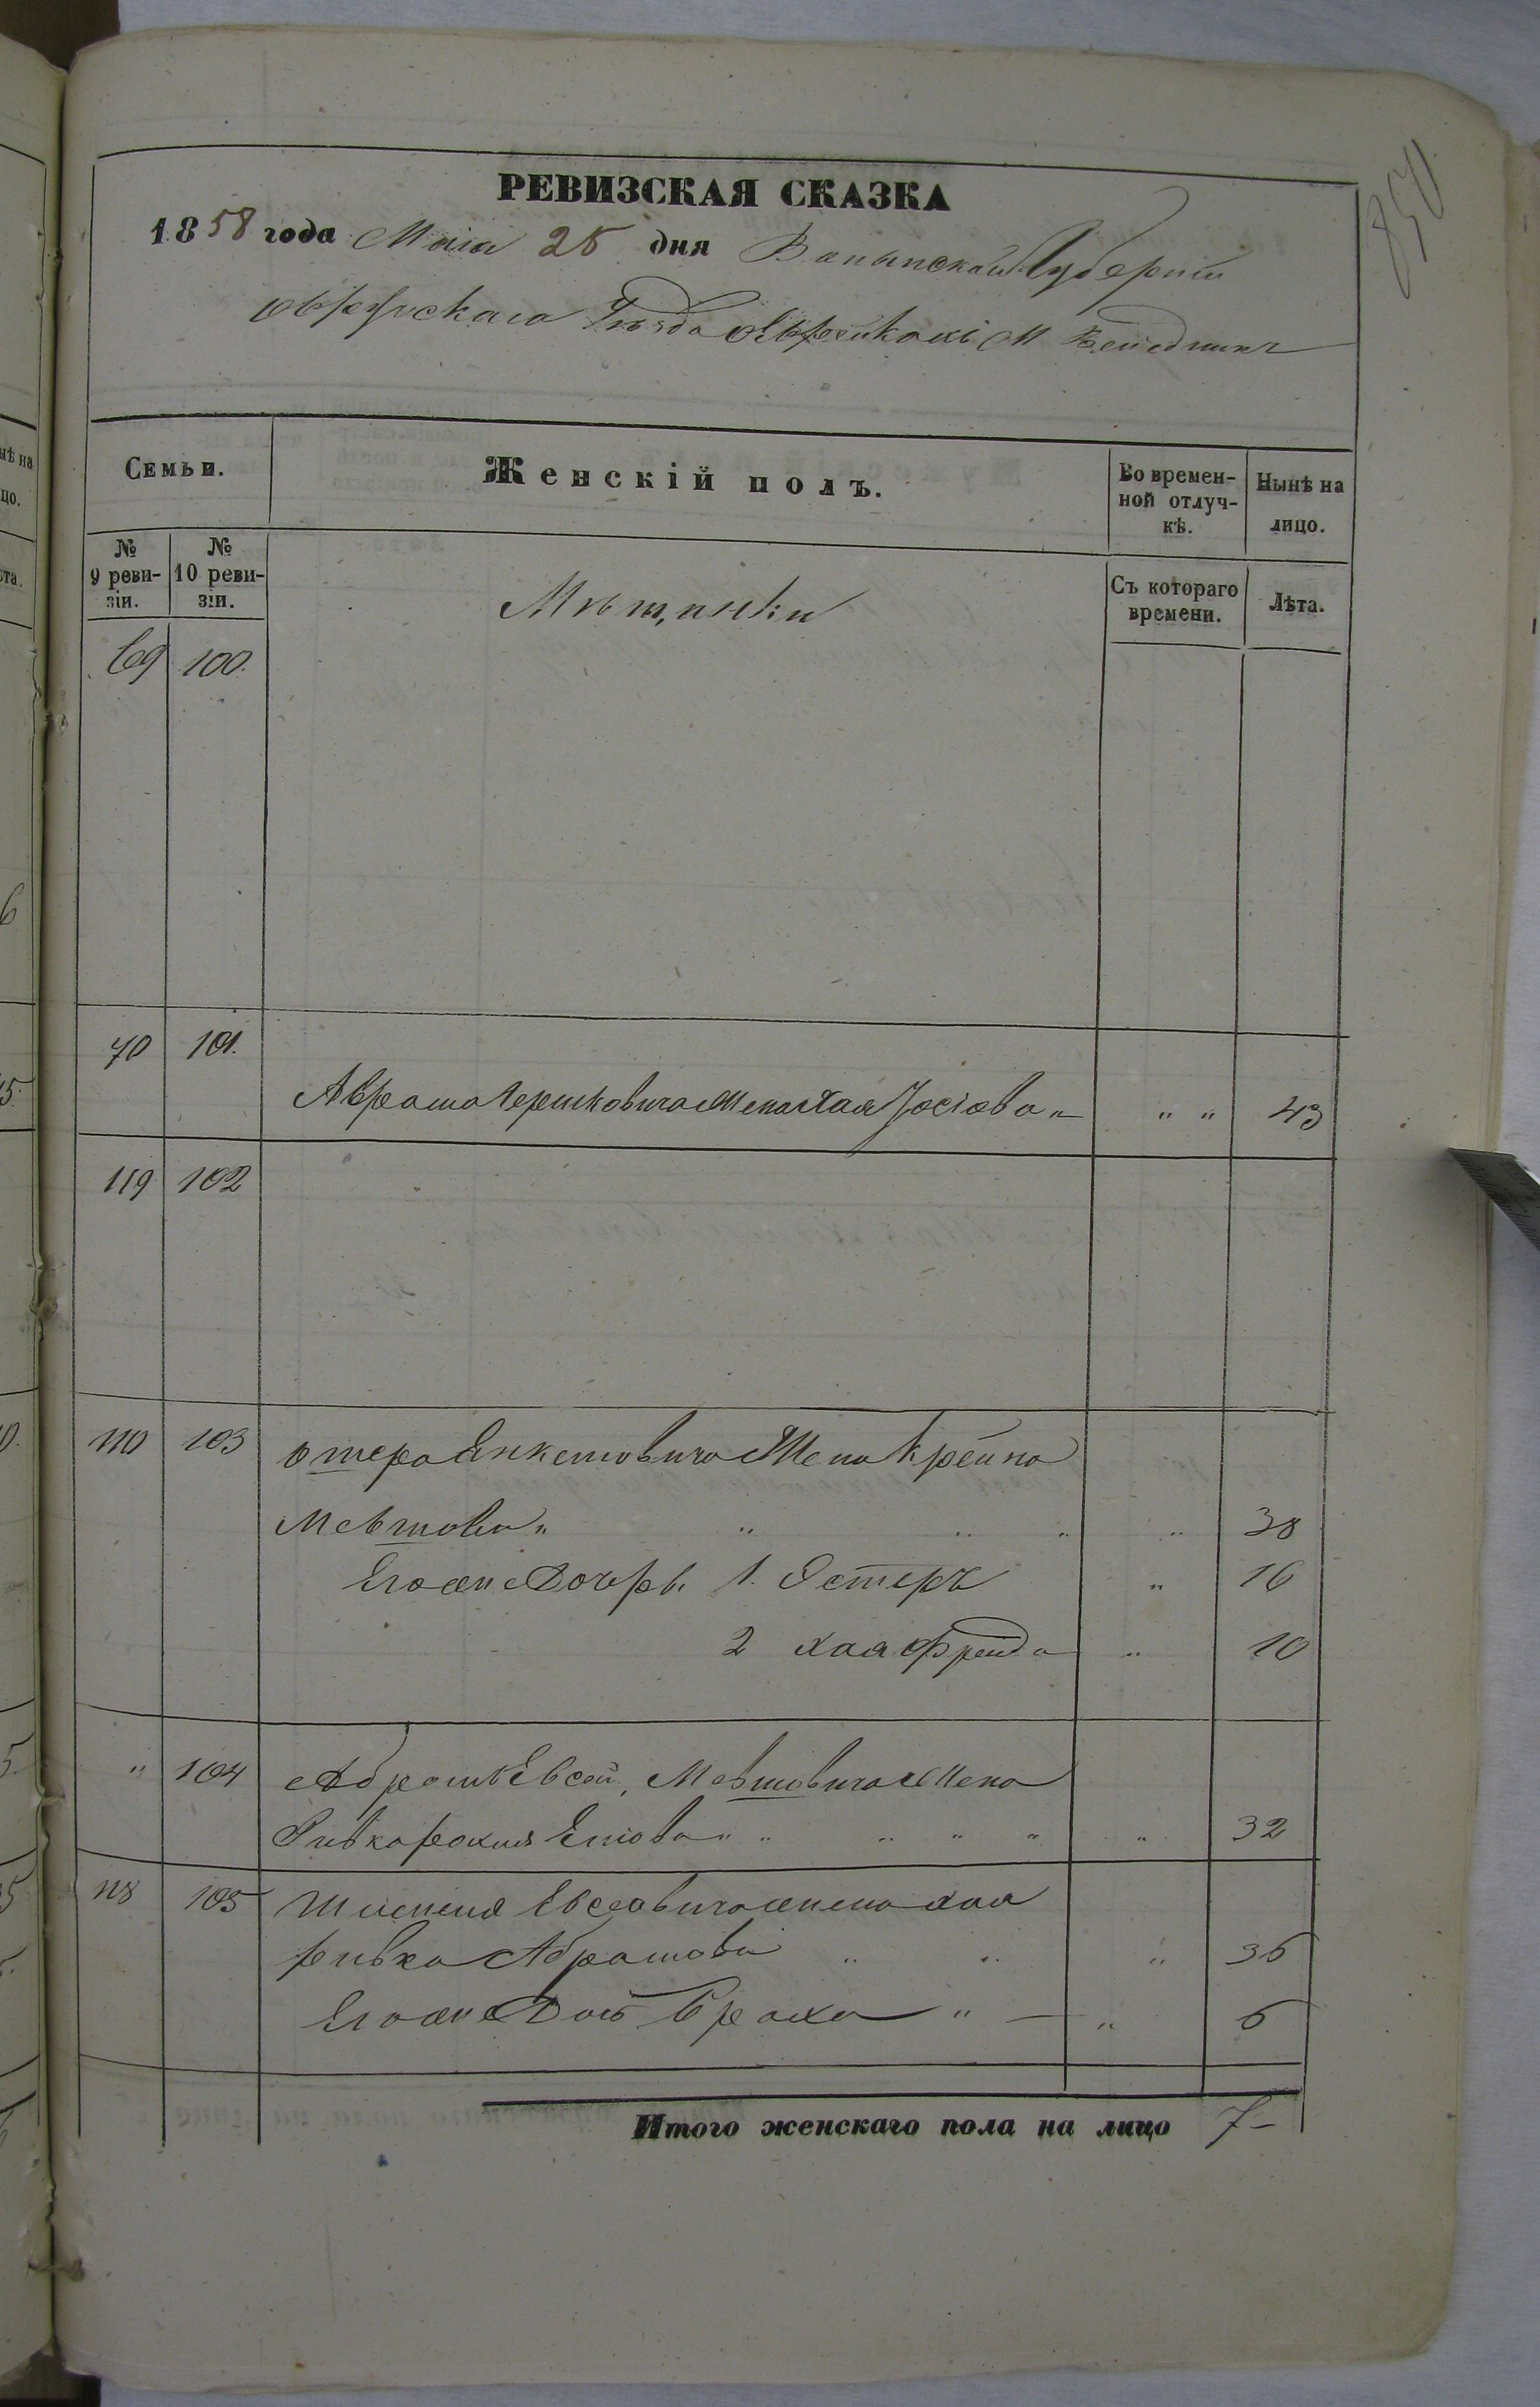 850
РЕВИЗСКАЯ СКАЗКА
1858 года Маіа 25 дня Валынской Губерніи
Овручскаго Уѣзда
Семьи.
Женскій полъ.
Во времен-
ной отлуч-
кѣ.
Нынѣ на
лицо.
№
9 реви-
зіи.
№
10 реви-
зіи.
Съ котораго
времени.
Лѣта.
Мѣщанки
69 100.
70 101.
Аврама Гершковича Жена Хая Іосіова " " " 43
119 102
110 103 Жена Крейна
Мевшова " " " " " 38
Его же Дочерь 1. Эстеръ " 16
2 Хая Фрейда " 10
" 104 Абрамъ Евсей Мевшовича Жена
Ривка " " " " " " 32
118 105 Евсеовича жена Хая
Ривка Абрамова " " " 36
Его же Дочь Браха " — " 6
Итого женскаго пола на лицо 7 -